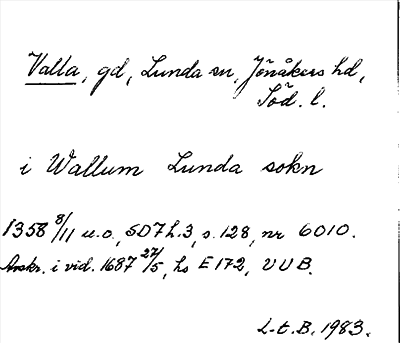 Valla, gd, Lunda sn, Jönåkers hd,
Söd. l.
i Wallum Lunda sokn
1358 8/11 u.o., SD7 h.3, s.128, nr 6010.
Avskr. i vid. 1687 27/5, hs E 172, UUB.
L-t.B. 1983.